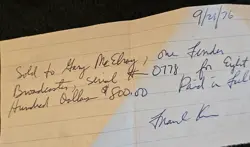 9/21/76
Sold to Gary McElroy, one Fender
Broadcaster, serial # 0778 for Eight
Hundred Dollars $800.00 Paid in Full
Frank